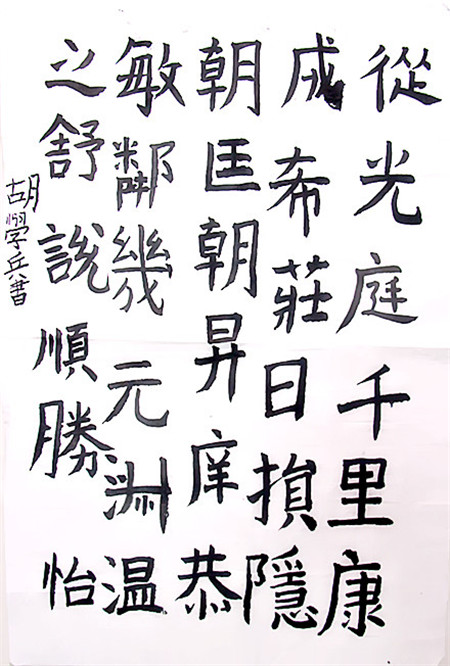 從光庭千里康
成希莊日損隱
朝匡朝昇庠恭
敏鄰幾元淵温
之舒說順勝怡
胡學兵書